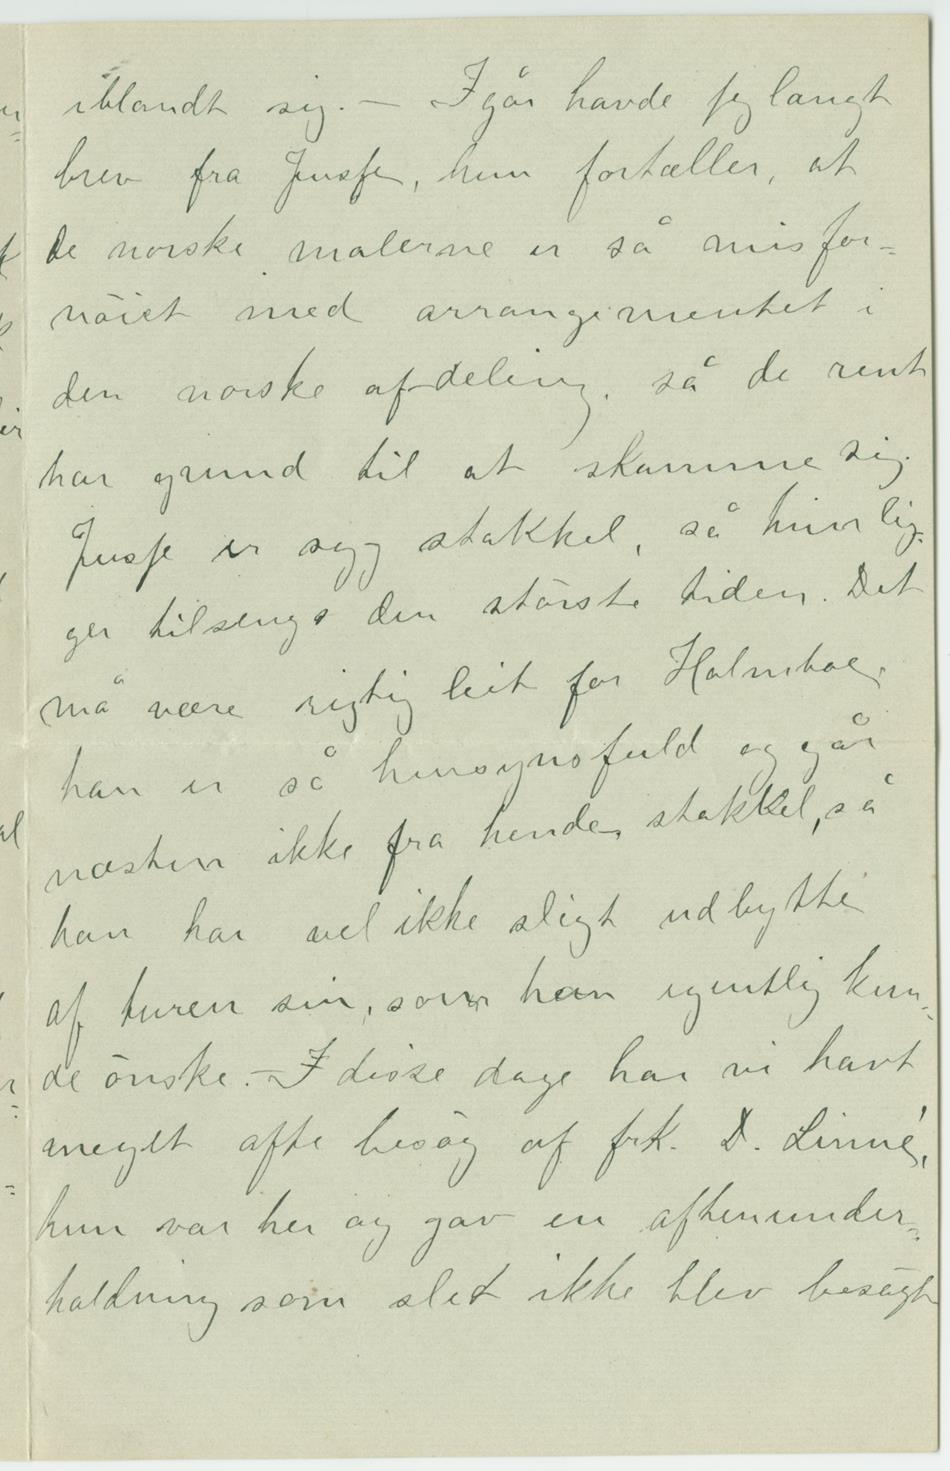 iblandt sig. — Igår havde jeg langt
brev fra Jusse, hun fortæller, at
de norske malerne er så misfor=
nöiet med arrangementet i
den norske afdeling, så de rent
har grund til at skamme sig.
Jusse er syg stakkel, så hun lig=
ger tilsengs den störste tiden. Det
må være rigtig leit for Holmboe,
han er så hensynsfuld og går
næsten ikke fra hende, stakkel, så
han har vel ikke sligt udbytte
af turen sin, som han egentlig kun=
de önske. — I disse dage har vi havt
meget ofte besög af frk. D. Linné,
hun var her og gav en aftenunder=
holdning som slet ikke blev besögt